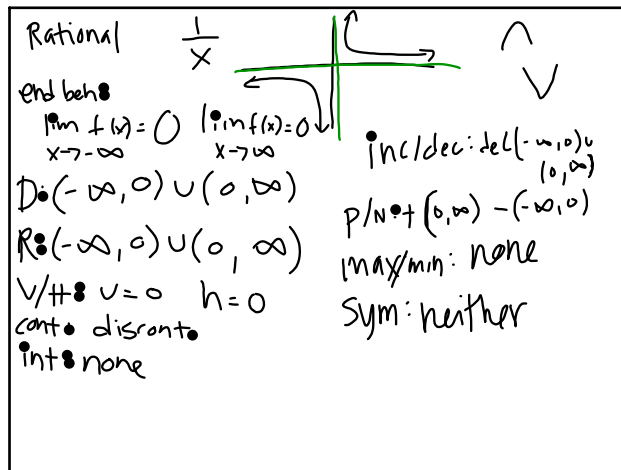 Rational 1/x
end beh:
lim f(x) = 0 lim f(x) = 0
x→-∞ x→∞
D: (-∞, 0) ∪ (0, ∞)
R: (-∞, 0) ∪ (0, ∞)
V/H: v = 0 h = 0
cont. discont.
int: none
inc/dec: dec(-∞, 0) ∪
(0, ∞)
P/N: + (0, ∞) - (-∞, 0)
max/min: none
sym: neither